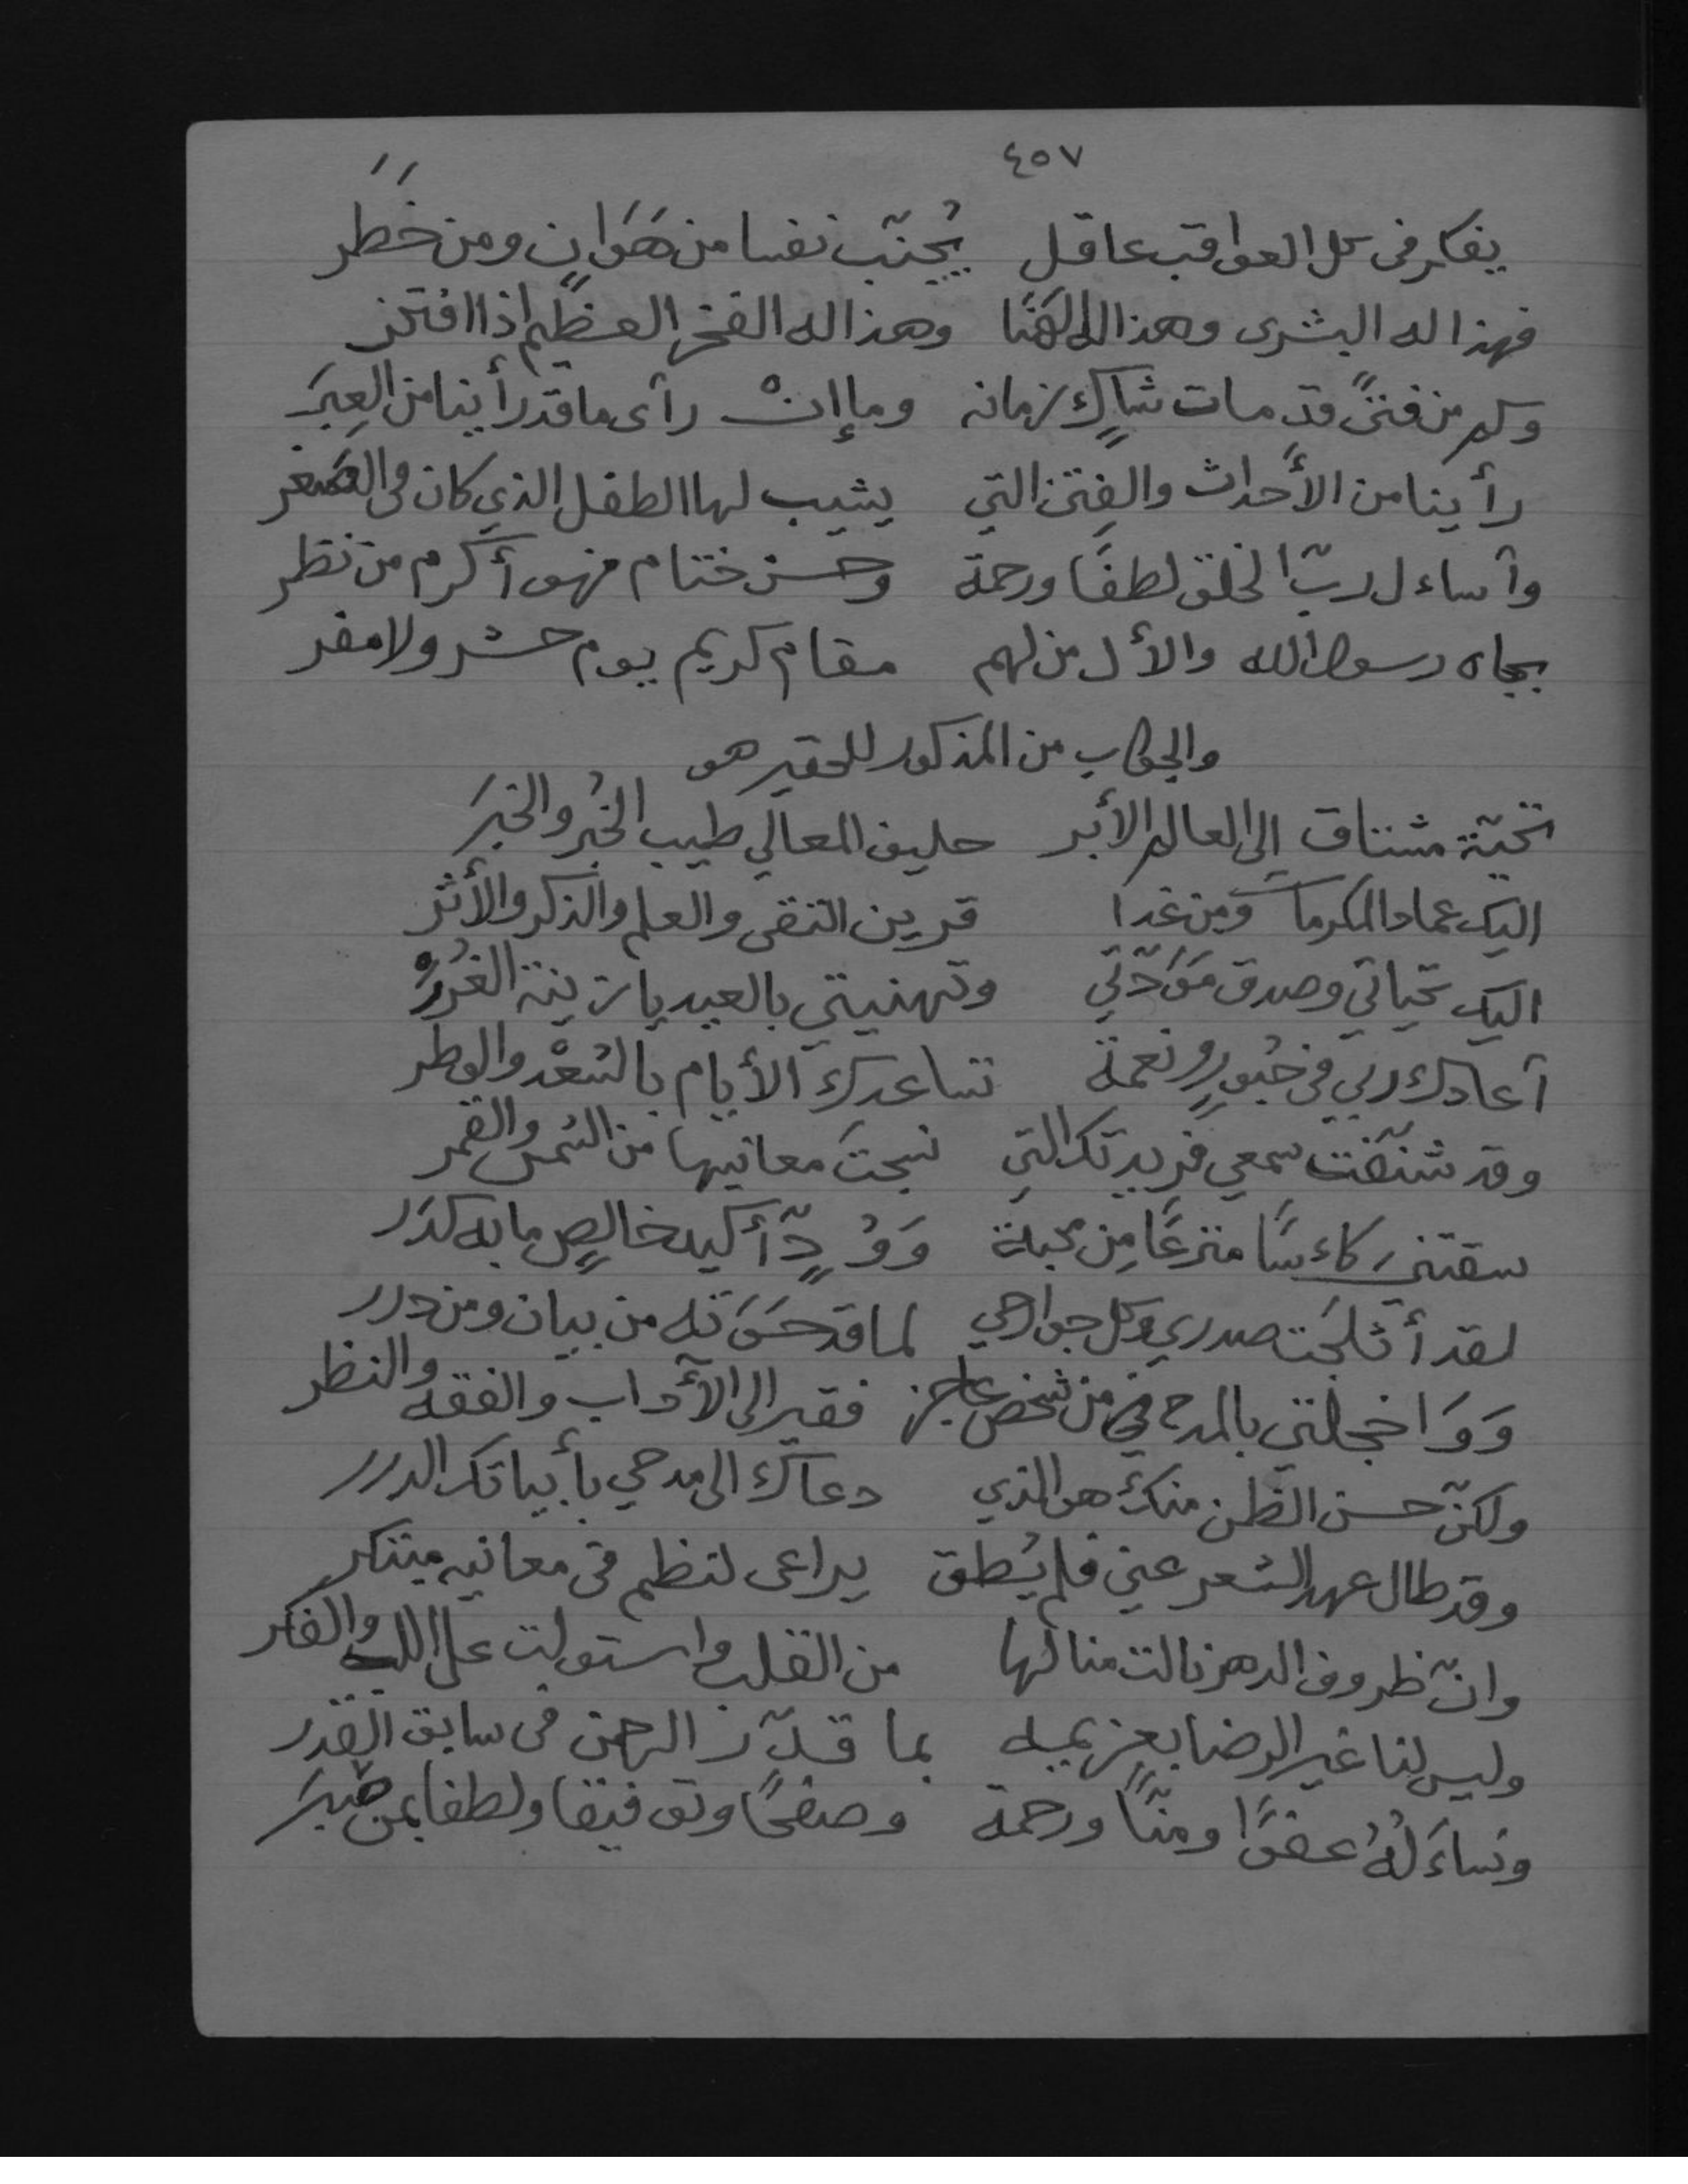 ٤٥٧
يفكر في كل العواقب عاقل يُجنّب نفسا من هَوَانٍ ومن خَطَر
فهذا له البشرى وهذا له الهَنَا وهذا له الفخر العظيم اذا افتخر
وكم من فتىً قد مات شاكٍ زمانه وما إنْ رأى ما قد رأينا من العِبَر
رأينا من الأحداث والفِتن التي يشيب لها الطفل الذي كان في الصغر
وأساءل ربّ الخلق لطفًا ورحمة وحسن ختام فهو أكرم من نظر
بجاه رسول الله والأل من لهم مقام كريم يوم حشر ولا مفر
والجواب من المذكور للحقير هو
تحيّة مشتاق إلى العالم الأبر حليف المعالي طيب الخُبر والخبَر
اليك عماد المكرمات ومن غدا قرين التقى والعلم والذكر والأثر
اليك تحياتي وصدق مَوَدّتي وتهنيتي بالعيد يا زينة الغُرَرْ
أعادك ربي في حُبورٍ ونعمة تساعدك الأيام بالسّعْد والوطر
وقد شنّفت سمعي فريدتك التي نسجتَ معانيها من الشمس والقمر
سقتني كاءسًا مترعًا مِن محبة وَوُدٍّ أكيد خالصٍ ما به كدَر
لقد أثلجَت صدري وكل جوارحي لما قد حَوَته من بيان ومن درر
وَوَا خجلتي بالمدح في من شخص عاجز فقير إلى الآداب والفقه والنظر
ولكنّ حسن الظن منك هو الذي دعاك الى مدحي بأبياتك الدرر
وقد طال عهد الشعر عني فلم يُطق يراعى لنظم في معانيه مبتكر
وانّ ظروف الدهر نالت منالها من القلب واستولت على اللب والفكر
وليس لنا غير الرضا بعزيمة بما قدّر الرحمن في سابق القدر
ونساءَلُهُ عفوًا ومنًّا ورحمة وصفحًا وتوفيقا ولطفا بمن صبَر